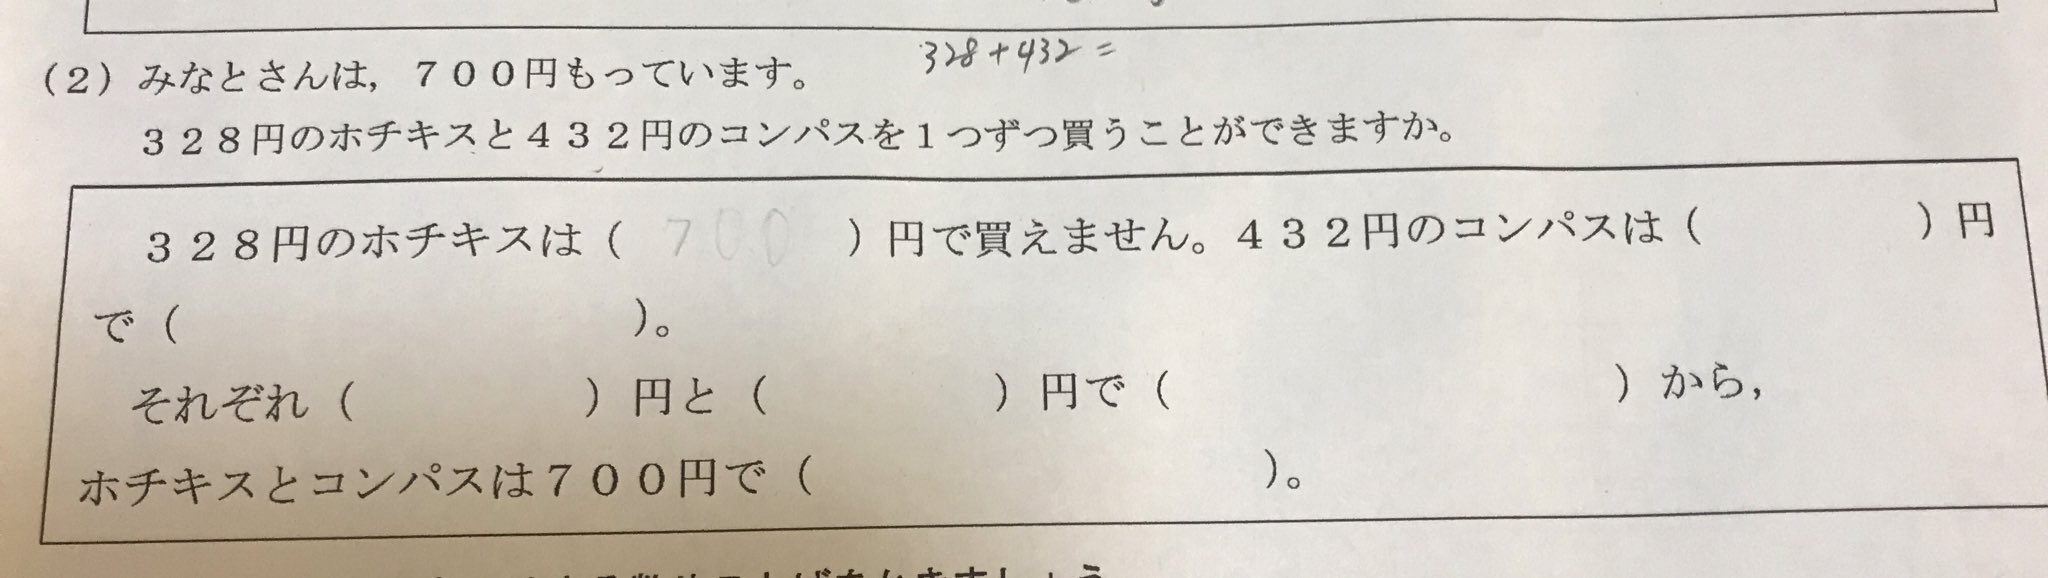 328+432=
(2) みなとさんは，７００円もっています。
３２８円のホチキスと４３２円のコンパスを１つずつ買うことができますか。
３２８円のホチキスは（ 700 ）円で買えません。４３２円のコンパスは（　　　）円
で（　　　　　　）。
それぞれ（　　　）円と（　　　）円で（　　　　　　）から，
ホチキスとコンパスは７００円で（　　　　　　）。